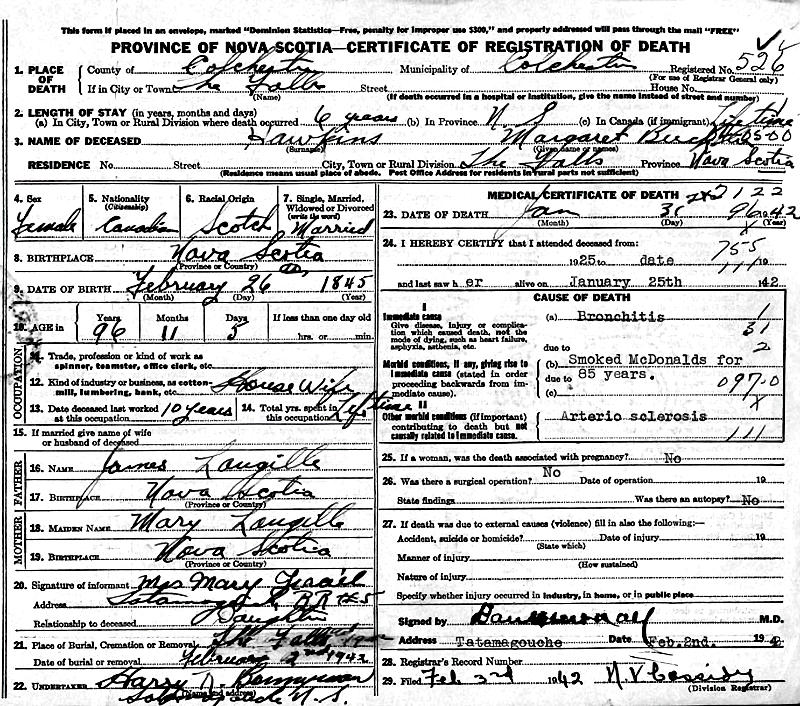 This form if placed in an envelope, marked "Dominion Statistics—Free, penalty for improper use $300," and properly addressed will pass through the mail "FREE"
PROVINCE OF NOVA SCOTIA—CERTIFICATE OF REGISTRATION OF DEATH
1. PLACE OF DEATH County of Colchester Municipality of Colchester Registered No. 526
(For use of Registrar General only)
If in City or Town The Falls Street House No.
(Name) (If death occurred in a hospital or institution, give the name instead of street and number)
2. LENGTH OF STAY (in years, months and days)
(a) In City, Town or Rural Division where death occurred 6 years (b) In Province N. S (c) In Canada (if immigrant) Life time
3. NAME OF DECEASED Hawkins Margaret
(Surname) (Given name or names)
RESIDENCE No. Street City, Town or Rural Division The Falls Province Nova Scotia
(Residence means usual place of abode. Post Office Address for residents in rural parts not sufficient)
4. Sex Female
5. Nationality (Citizenship) Canadian
6. Racial Origin Scotch
7. Single, Married, Widowed or Divorced (write the word) Married
8. BIRTHPLACE Nova Scotia
(Province or Country)
9. DATE OF BIRTH February 26 1845
(Month) (Day) (Year)
10. AGE in Years 96 Months 11 Days 5 If less than one day old
hrs. or min.
OCCUPATION
11. Trade, profession or kind of work as spinner, teamster, office clerk, etc.
12. Kind of industry or business, as cotton-mill, lumbering, bank, etc. House Wife
13. Date deceased last worked at this occupation 10 years 14. Total yrs. spent in this occupation Life time
15. If married give name of wife or husband of deceased
FATHER
16. NAME James Langille
17. BIRTHPLACE Nova Scotia
(Province or Country)
MOTHER
18. MAIDEN NAME Mary Langille
19. BIRTHPLACE Nova Scotia
(Province or Country)
20. Signature of informant Mrs Mary
Address Tatamagouche, RR #5
Relationship to deceased Daughter
21. Place of Burial, Cremation or Removal The Falls
Date of burial or removal February 2nd 1942
22. UNDERTAKER Harry
(Name and address)
Tatamagouche N. S.
MEDICAL CERTIFICATE OF DEATH 2122
23. DATE OF DEATH Jan 31 1942
(Month) (Day) (Year)
24. I HEREBY CERTIFY that I attended deceased from:
1925 to date 19
755
111
and last saw her alive on January 25th 142
CAUSE OF DEATH
I
Immediate cause (a) Bronchitis 1
Give disease, injury or complication which caused death, not the mode of dying, such as heart failure, asphyxia, asthenia, etc. 31
due to 2
Morbid conditions, if any, giving rise to immediate cause (stated in order proceeding backwards from immediate cause). (b) Smoked McDonalds for
due to 85 years.
(c) 097-0
X
II
Other morbid conditions (if important) contributing to death but not causally related to immediate cause. Arterio sclerosis
111
25. If a woman, was the death associated with pregnancy? No
26. Was there a surgical operation? No Date of operation 19
State findings Was there an autopsy? No
27. If death was due to external causes (violence) fill in also the following:—
Accident, suicide or homicide? Date of injury 19
(State which)
Manner of injury
(How sustained)
Nature of injury
Specify whether injury occurred in industry, in home, or in public place
Signed by M.D.
Address Tatamagouche Date Feb.2nd. 194
28. Registrar's Record Number
29. Filed Feb 3rd 1942 N. V Cassidy
(Division Registrar)